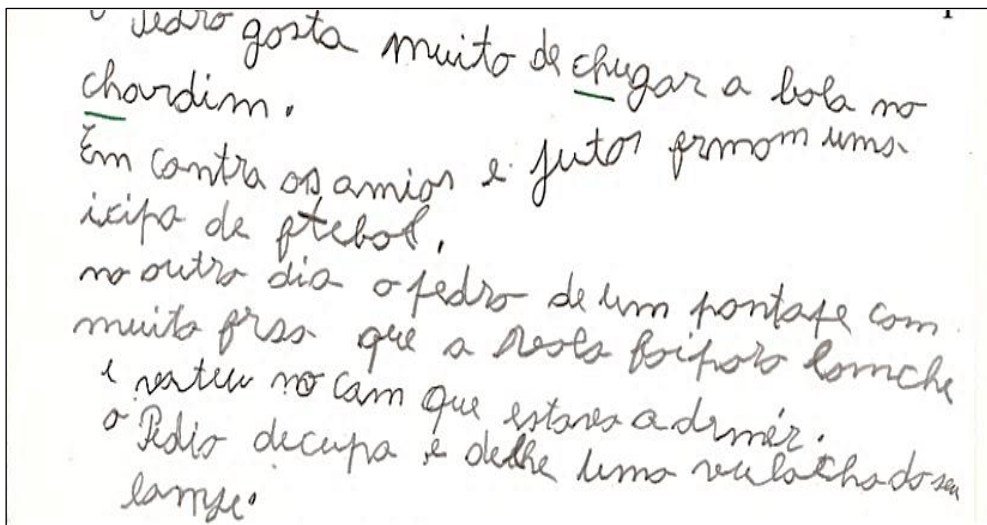 o Pedro gosta muito de chugar a bola no
chardim.
Em contra os amios e jutos frmom uma
ixipa de ftebol.
no outro dia o pedro de um pontape com
muita frsa que a bola foi para lomche
e verteu no cam que estava a drmir.
o Pedro decupa e delhe uma vulacha do seu
lamxe.